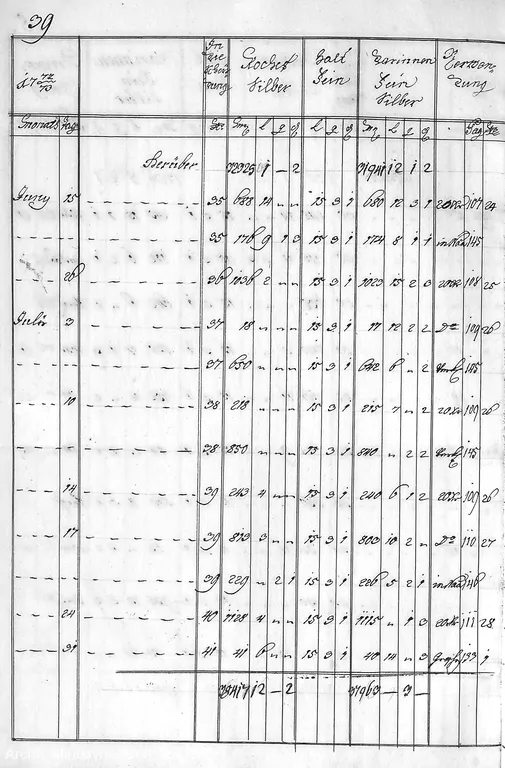 39
1772/73
In der Rechnung
Kochet Silber
Halt Fein
Darinnen Fein Silber
Verwendung
Monath Tag
Nr Mrg l q d l q d Mrg l q d Pag Nr
Herüber 32325 1 — 2 31941 12 1 2
Juny 15 35 688 14 " " 15 3 1 680 12 3 1 107 24
35 1176 9 1 3 15 3 1 8 1 1 145
26 36 1036 2 " " 15 3 1 1023 15 2 3 108 25
Julii 3 37 18 " " " 15 3 1 17 12 2 2 Do 109 26
37 650 " " " 15 3 1 642 6 " 2 145
10 38 218 " " " 15 3 1 215 7 " 2 109 26
38 850 " " " 15 3 1 840 " 2 2 145
14 39 243 4 " " 15 3 1 240 6 1 2 109 26
17 39 813 3 " " 15 3 1 803 10 2 " Do 110 27
39 229 " 2 1 15 3 1 226 5 2 1 146
24 40 1128 4 " " 15 3 1 1115 " 1 3 111 28
31 41 41 6 " " 15 3 1 40 14 " 3 133 1
38417 12 — 2 37963 — 3 —